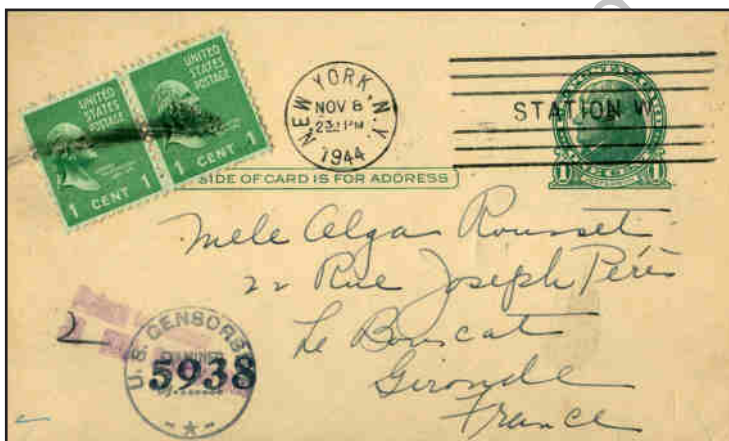 UNITED
STATES
POSTAGE
1 CENT 1
UNITED
STATES
POSTAGE
1 CENT 1
NEW YORK, N.Y.
NOV 8
PM
1944
STATION W
1 1
SIDE OF CARD IS FOR ADDRESS
Melle Olga Rousset
22 Rue Joseph Pérès
Le Bouscat
Gironde
France
2
U.S. CENSORSHIP
EXAMINED
5938
By